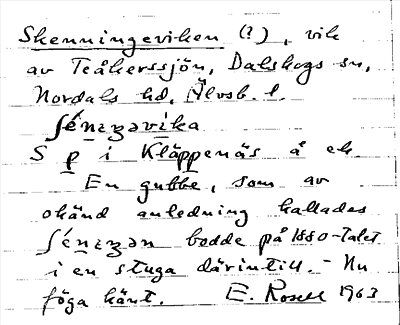 Skenningeviken (?), vik
av Teåkerssjön, Dalskogs sn,
Nordals hd, Älvsb. l.
ʃénɪŋəvika
S p i Kläppenäs å ek
En gubbe, som av
okänd anledning kallades
ʃénɪŋən bodde på 1880-talet
i en stuga därintill. - Nu
föga känt. E. Rosell 1963